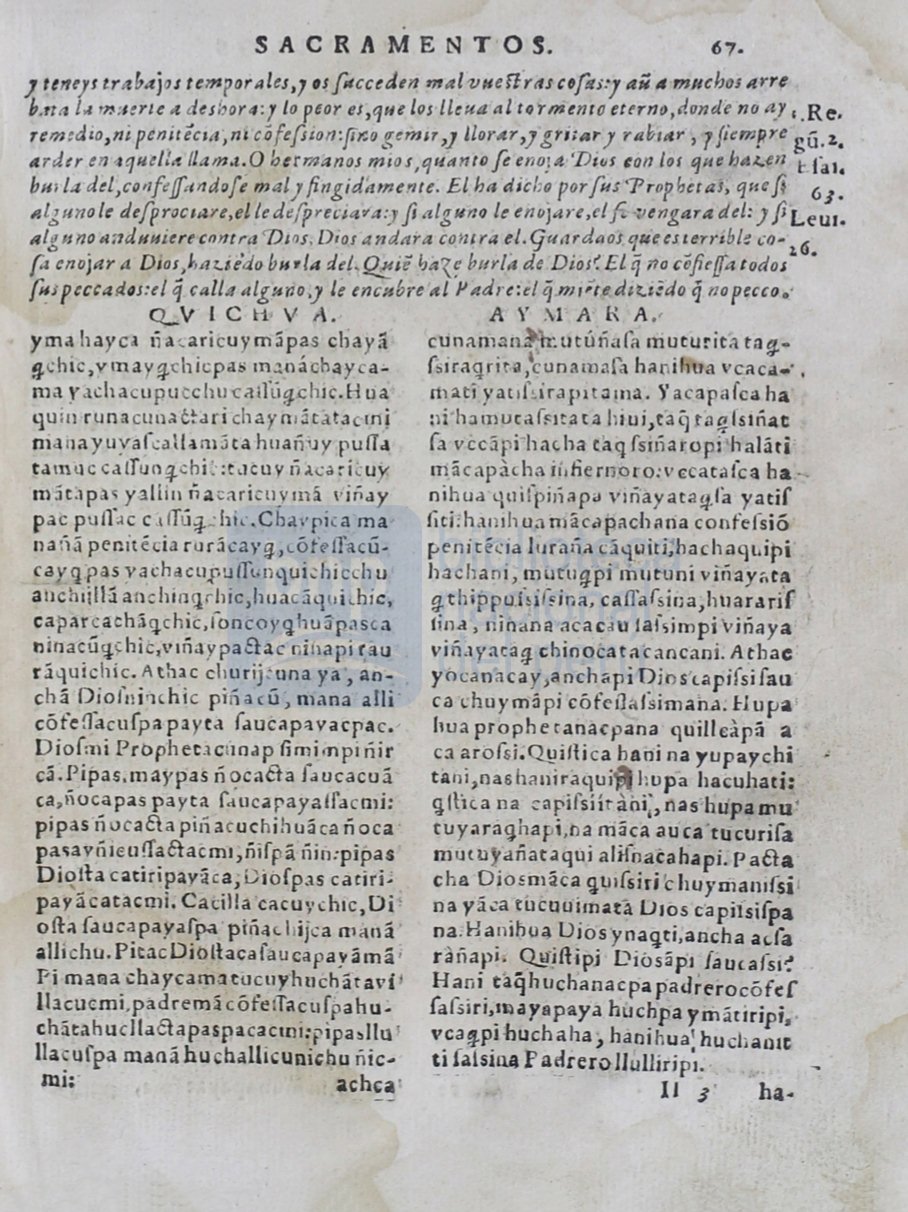 SACRAMENTOS. 67.
y teneys trabajos temporales, y os succeden mal vuestras cosas: y aũ a muchos arre
bata la muerte a deshora: y lo peor es, que los lleua al tormento eterno, donde no ay
remedio, ni penitẽcia, ni cõfession: sino gemir, y llorar, y gritar y rabiar, y siempre
arder en aquella llama. O hermanos mios, quanto se enoja Dios con los que hazen
burla del, confessandose mal y fingidamente. El ha dicho por sus Prophetas, que si
alguno le despreciare, el le despreciara: y si alguno le enojare, el se vengara del: y si
alguno anduuiere contra Dios, Dios andara contra el. Guardaos que es terrible co-
sa enojar a Dios, haziẽdo burla del. Quiẽ haze burla de Dios? El q̃ no cõfiessa todos
sus peccados: el q̃ calla alguno, y le encubre al Padre: el q̃ miẽte diziẽdo q̃ no pecco.
1. Re.
gũ. 2.
Esai.
63.
Leui.
26.
QVICHVA.
yma hayca ñacaricuymãpas chayã
q̃chic, ymayq̃chicpas manáchayca-
ma yachacupucchu cassũq̃chic. Hua
quin runacunactari chaymãtatacmi
mana yuyascallamãta huañuy pussa
tamuc cassunq̃chic: tucuy ñacaricuy
mãtapas yallin ñacaricuymã viñay
pac pussac cassũq̃chic. Chaypica ma
nañã penitẽcia rurãcayq̃, cõfessacũ-
cayq̃pas yachacupussunquichicchu
anchijllã anchinq̃chic, huacãquichic,
caparcachãq̃chic, soncoyq̃huãpasca
ninacũq̃chic, viñaypactac ninapi rau
rãquichic. Athac churijcuna ya, an-
chã Diosninchic piñacũ, mana alli
cõfessacuspa payta saucapayacpac.
Diosmi Prophetacunap simimpi ñir
cã. Pipas, maypas ñocacta saucacuã
ca, ñocapas payta saucapayassacmi:
pipas ñocacta piñacuchihuãca ñoca
pas ayñicussactacmi, ñispã ñin: pipas
Diosta catiripayãca, Diospas catiri-
payãcatacmi. Catilla cacuychic, Di
osta saucapayaspa piñachijca manã
allichu. Pitac Diostaca saucapayãmã
Pi mana chaycama tucuy huchãtavi
llacucmi, padremã cõfessacuspa hu-
chãta hucllactapas pacacmi: pipas llu
llacuspa manã huchallicunichu ñic-
mi: achca
AYMARA.
cunamanã mutúñasa muturita taq̃-
ssiraq̃rita, cunamasa hanihua vcaca-
mati yatissirapitama. Yacapasca ha
ni hamucassitata hiui, taq̃ taq̃ssiñat
sa vccãpi hacha taq̃ssiñaropi halãti
mãcapacha infiernoro: vccatasca ha-
nihua quispiñapa viñayataq̃sa yatis
siti: hanihua mãcapachana confessiõ
penitẽcia luraña cãquiti, hachaquipi
hachani, mutuq̃pi mutuni viñayata
q̃thippuisissina, cassassina, huararis
sina, ninana acacau sassimpi viñaya
viñayataq̃ chinocatacancani. Athac
yocanacay, anchapi Dios capissi sau
ca chuymãpi cõfessassimana. Hupa
hua prophetanacpana quillcàpã a
ca arossi. Quistica hani na yupaychi
tani, nas haniraquipi hupa hacuhati:
q̃stica na capissiirani, nas hupa mu
tuyaraq̃hapi, na mãca auca tucurisa
mutuyañataqui alisnacahapi. Pacta
cha Diosmãca quissiri chuymanissi
na yãca tucuuimata Dios capissispa
na. Hanihua Dios ynaq̃ti, ancha acsa
ràñapi. Quistipi Diosãpi saucassi?
Hani taq̃ huchanacpa padrerocõfes
sassiri, mayapaya huchpa ymãtiripi,
vcaq̃pi huchaha, hanihua huchanit
ti sassina Padrero llulliripi.
II 3 ha-